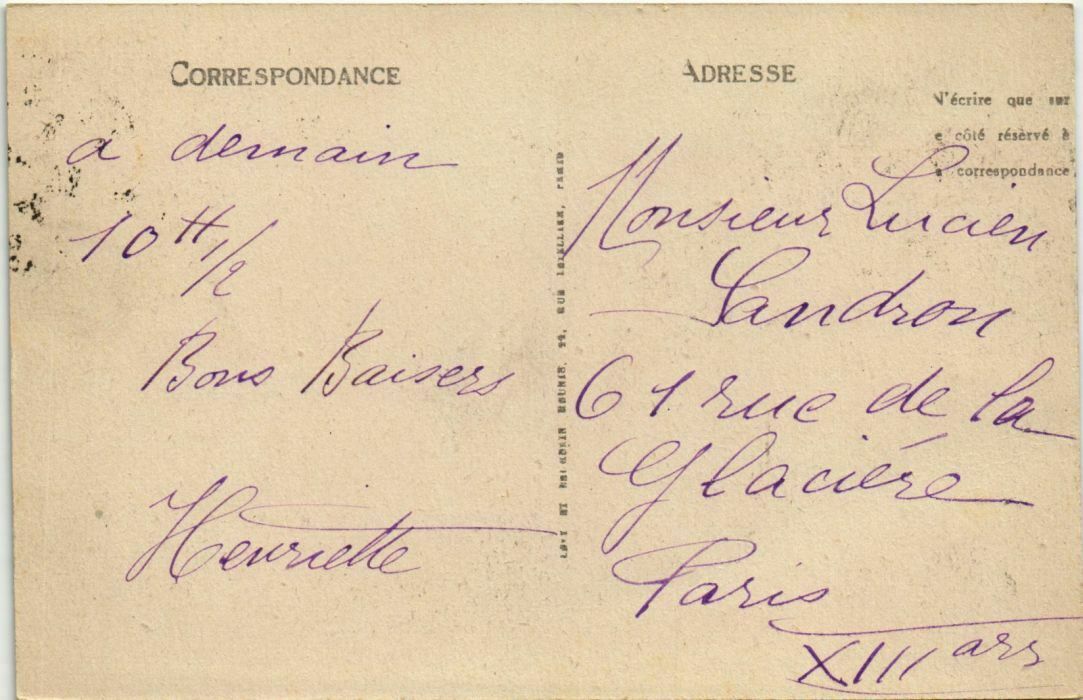 CORRESPONDANCE
a demain
10 H 1/2
Bons Baisers
Henriette
ADRESSE
N'écrire que sur
e côté réservé à
a correspondance
Monsieur Lucien
Landron
61 rue de la
Glacière
Paris
XIII arr
LEVY ET NEURDEIN REUNIS, 44, RUE LETELLIER, PARIS